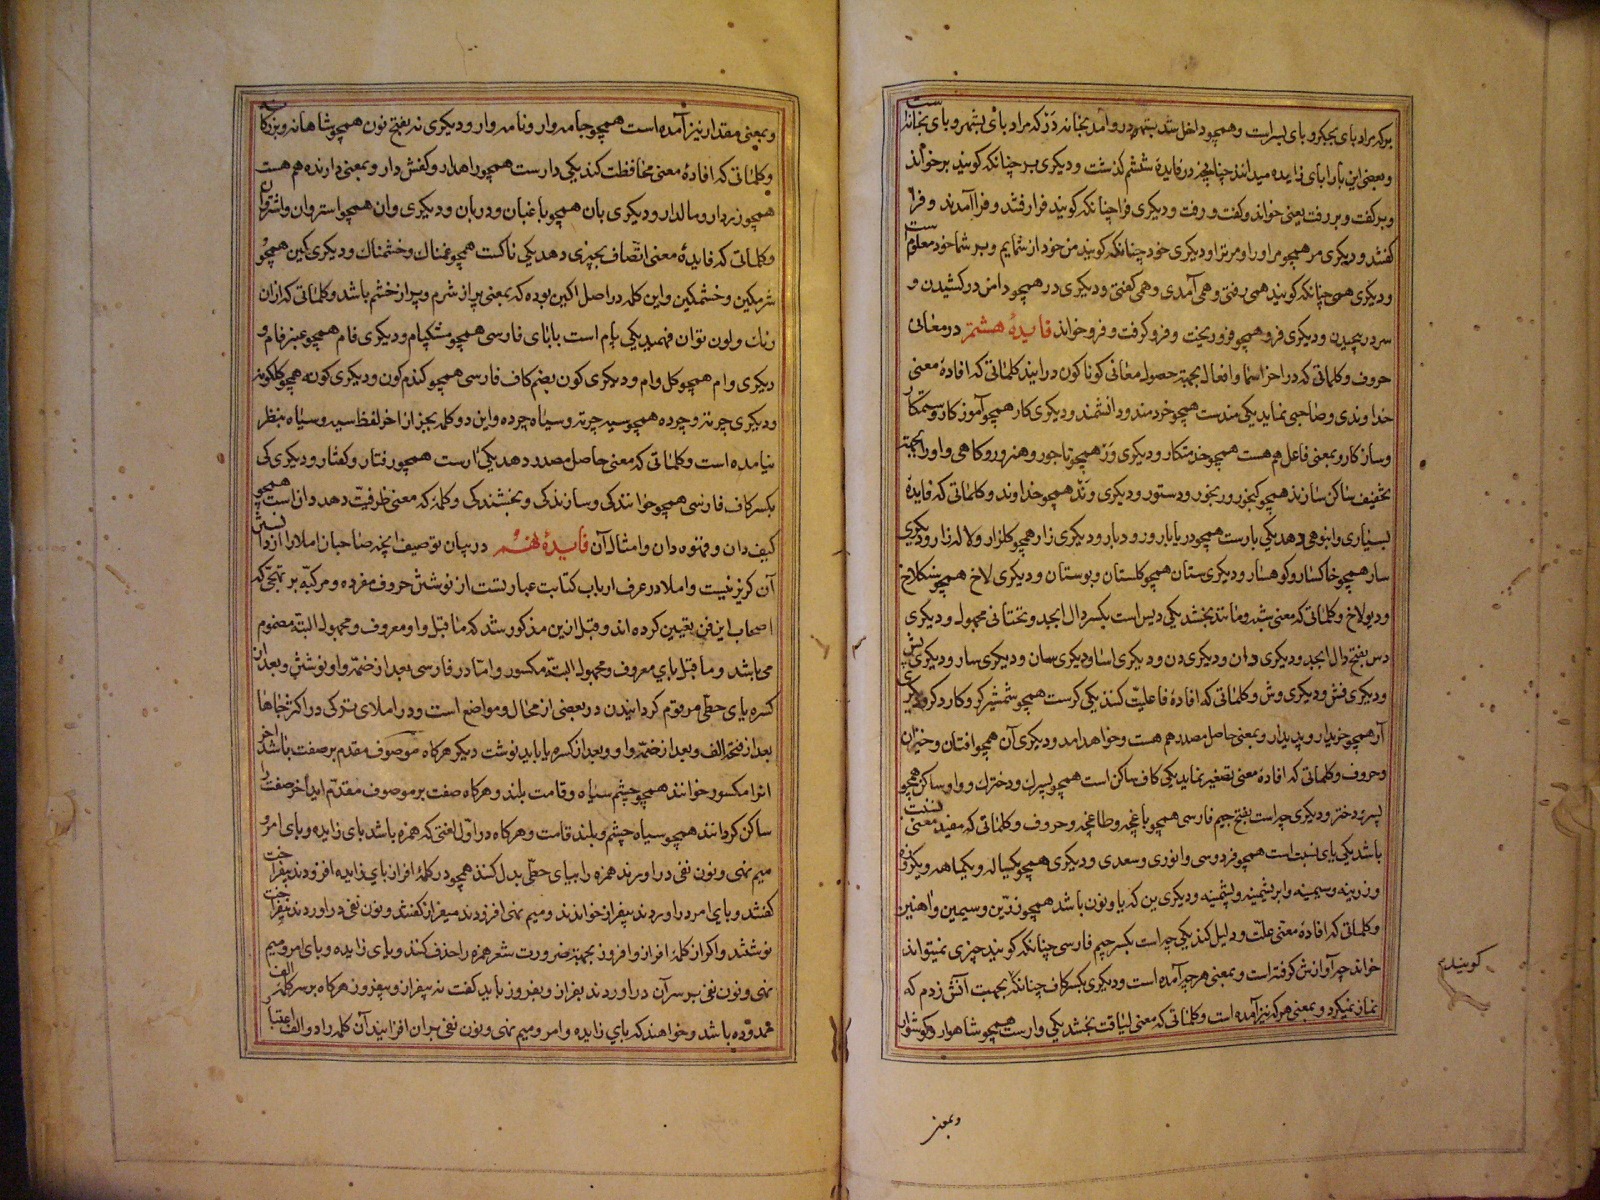 برکه مراد بای بجیکر و بای بسراست و همچو داخل شد بشهر در و آمد بخانه در که مراد بای بشهر و بای بخانه است
و بعضی این با را بای زایده میدانند چنانچه در فایدهٔ ششم گذشت و دیگری بر چنانکه گویند برخواند
و برگفت و بررفت یعنی خواند و گفت و رفت و دیگری فرا چنانکه گویند فرا رفتند و فرا آمدند و فرا
گفتند و دیگری مر همچو مر او را و مر ترا و دیگری خود چنانکه گویند من خود از شمایم و بر شما خود معلوم است
و دیگری همی چنانکه گویند همی رفتی و همی آمدی و همی گفتی و دیگری در همچو دامن در کشیدن و
سر در پیچیدن و دیگری فرو همچو فرو ریخت و فرو گرفت و فرو خواند فایدهٔ هشتم در معانی
حروف و کلماتی که در اخر اسما و افعال بجهة حصول معانی گوناگون درایند کلماتی که افادهٔ معنی
خداوندی و صاحبی نماید یکی مندست همچو خردمند و دانشمند و دیگری کار همچو آموزکار و ستمکار
و سازکار و بمعنی فاعل هم هست همچو خدمتکار و دیگری ور همچو تاجور و هنرور و کاهی واو را بجهة
تخفیف ساکن سازند همچو گنجور و رنجور و دستور و دیگری وند همچو خداوند و کلماتی که فایدهٔ
بسیاری و انبوهی دهد یکی بارست همچو دریابار و رودبار و دیگری زار همچو گلزار و لاله زار و دیگری
سار همچو خاکسار و کوهسار و دیگری ستان همچو گلستان و بوستان و دیگری لاخ همچو سنگلاخ
و دیولاخ و کلماتی که معنی شبه و مانند بخشد یکی دیس است بکسر دال ابجد و تحتانی مجهول و دیگری
دس بفتح دال ابجد و دیگری وان و دیگری ون و دیگری اسا و دیگری سان و دیگری سار و دیگری پش
و دیگری فش و دیگری وش و کلماتی که افادهٔ فاعلیت کند یکی گرست همچو شمشیرگر و کاردگر و دیگری
آر همچو خریدار و پدیدار و بمعنی حاصل مصدر هم هست و خواهد امد و دیگری آن همچو افتان و خیزان
و حروف و کلماتی که افادهٔ معنی تصغیر نماید یکی کاف ساکن است همچو پسرك و دخترك و واو ساکن همچو
پسرو و دخترو دیگری چه است بفتح جیم فارسی همچو باغچه و طاغچه و حروف و کلماتی که مفید معنی نسبت
باشد یکی یای نسبت است همچو فردوسی و انوری و سعدی و دیگری ه همچو یکساله و یکماهه و یکروزه
و زرینه و سیمینه و ابریشمینه و پشمینه و دیگری ین که یا و نون باشد همچو زرین و سیمین و اهنین
و کلماتی که افادهٔ معنی علت و دلیل کند یکی چه است بکسر جیم فارسی چنانکه گویند چیزی نمیتواند
خواند چه آوازش گرفته است و بمعنی هرچه آمده است و دیگری بکسر کاف چنانکه بجهت آتش زدم که
نماز نمیکرد و بمعنی هرکه نیز آمده است و کلماتی که معنی لیاقت بخشد یکی وارست همچو شاهوار و گوشوار
گویند یم
و بمعنی
و بمعنی مقدار نیز آمده است همچو جامه وار و نامه وار و دیگری نه بفتح نون همچو شاهانه و بزرگانه
و کلماتی که افادهٔ معنی محافظت کند یکی دارست همچو راهدار و کفش دار و بمعنی دارنده هم هست
همچو زردار و مالدار و دیگری بان همچو باغبان و دربان و دیگری وان همچو استروان و اشتروان
و کلماتی که فایدهٔ معنی اتصاف بچیزی دهد یکی ناکست همچو غمناك و خشمناك و دیگری کین همچو
شرمکین و خشمکین و این کلمه در اصل اکین بوده که بمعنی پر از شرم و پر از خشم باشد و کلماتی که از ان
رنك و لون توان فهمید یکی پام است با بای فارسی همچو مشکپام و دیگری فام همچو عنبرفام و
دیگری وام همچو گل وام و دیگری کون بضم کاف فارسی همچو کندم کون و دیگری کونه همچو گلکونه
و دیگری چرته و چرده همچو سیه چرته و سیاه چرده و این دو کلمه بجز از اخر لفظ سیه و سیاه بنظر
نیامده است و کلماتی که معنی حاصل مصدر دهد یکی ارست همچو رفتار و گفتار و دیگری کی
بکسر کاف فارسی همچو خوانندکی و سازندکی و بخشندکی و کلمهٔ که معنی ظرفیت دهد دان است همچو
کیف دان و قهوه دان و امثال آن فایدهٔ نهم در بیان توصیف انچه صاحبان املا را از دانستن
آن گریز نیست و املا در عرف ارباب کتابت عبارتست از نوشتن حروف مفرده و مرکبه بر نهجی که
اصحاب این فن تعیین کرده اند و قبل ازین مذکور شد که ما قبل واو معروف و مجهول البته مضموم
می باشد و ما قبل یای معروف و مجهول البته مکسور و اما در فارسی بعد از ضمه واو نوشتن و بعد از
کسره یای حطی مرقوم گردانیدن در بعضی از محال و مواضع است و در املای ترکی در اکثر جاها
بعد از فتحه الف و بعد از ضمه واو و بعد از کسره یا باید نوشت دیگر هرکاه موصوف مقدم بر صفت باشد اخر
انرا مکسور خوانند همچو چشم سیاه و قامت بلند و هرکاه صفت بر موصوف مقدم اید اخر صفت را
ساکن گردانند همچو سیاه چشم و بلند قامت و هرکاه در اول لغتی که همزه باشد بای زایده و بای امر و
میم نهی و نون نفی دراورند همزه را بیای حطی بدل کنند همچو در کلمهٔ افراز بای زایده افزودند بیفراخت
گفتند و بای امر دراوردند بیفراز خواندند و میم نهی افزودند میفراز گفتند و نون نفی دراوردند نیفراخت
نوشتند و اکر از کلمهٔ افراز و افروز بجهة ضرورت شعر همزه را حذف کنند و بای زایده و بای امر و میم
نهی و نون نفی بر سر آن دراوردند بفراز و بفروز باید گفت نه بیفراز و بیفروز و هرکاه بر سر کلمهٔ که الف
ممدوده باشد و خواهند که بای زایده و امر و میم نهی و نون نفی بران افزایند آن کلمه را دو الف اعتبار